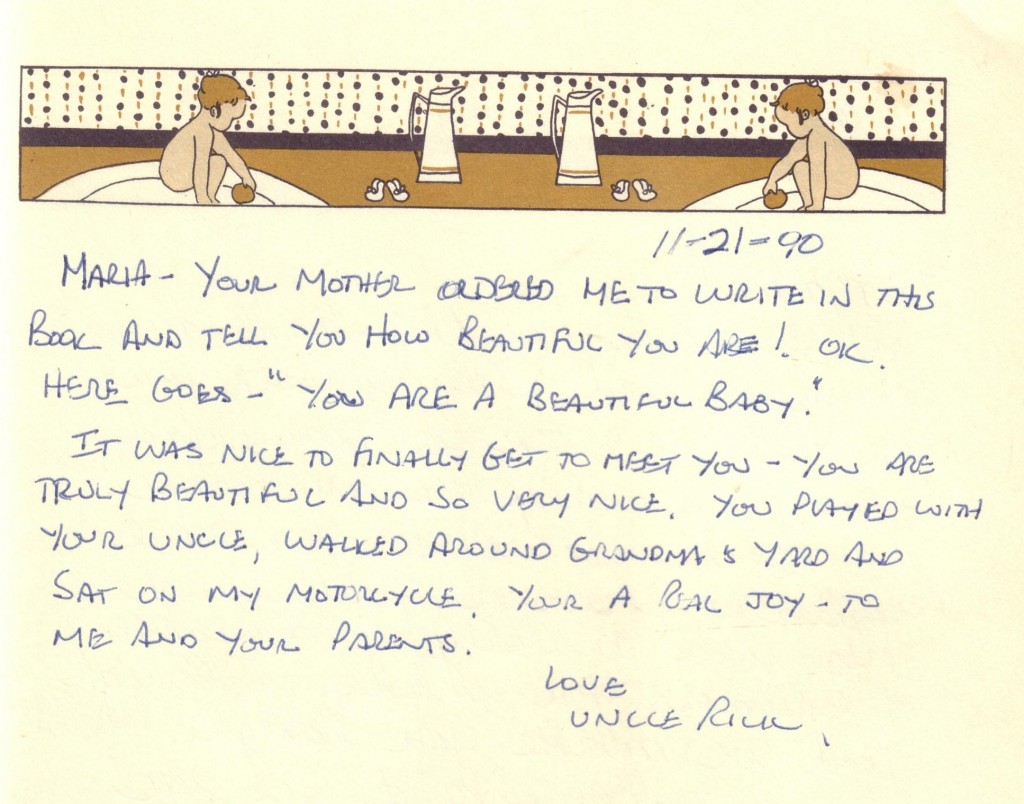 11-21-90
MARIA - YOUR MOTHER ORDERED ME TO WRITE IN THIS
BOOK AND TELL YOU HOW BEAUTIFUL YOU ARE! OK.
HERE GOES - "YOU ARE A BEAUTIFUL BABY."
IT WAS NICE TO FINALLY GET TO MEET YOU - YOU ARE
TRULY BEAUTIFUL AND SO VERY NICE. YOU PLAYED WITH
YOUR UNCLE, WALKED AROUND GRANDMA'S YARD AND
SAT ON MY MOTORCYCLE. YOUR A REAL JOY - TO
ME AND YOUR PARENTS.
LOVE
UNCLE RICK.